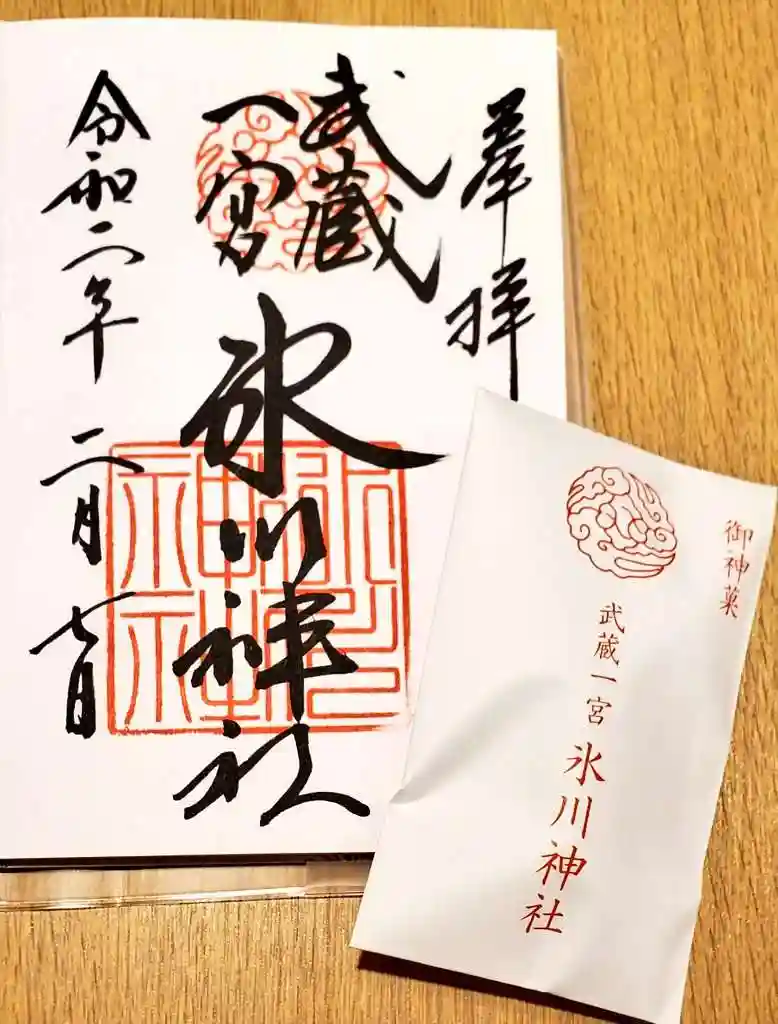 奉拝
武蔵
一宮
氷川神社
令和二年二月七日
氷川神社
御神菓
武蔵一宮氷川神社